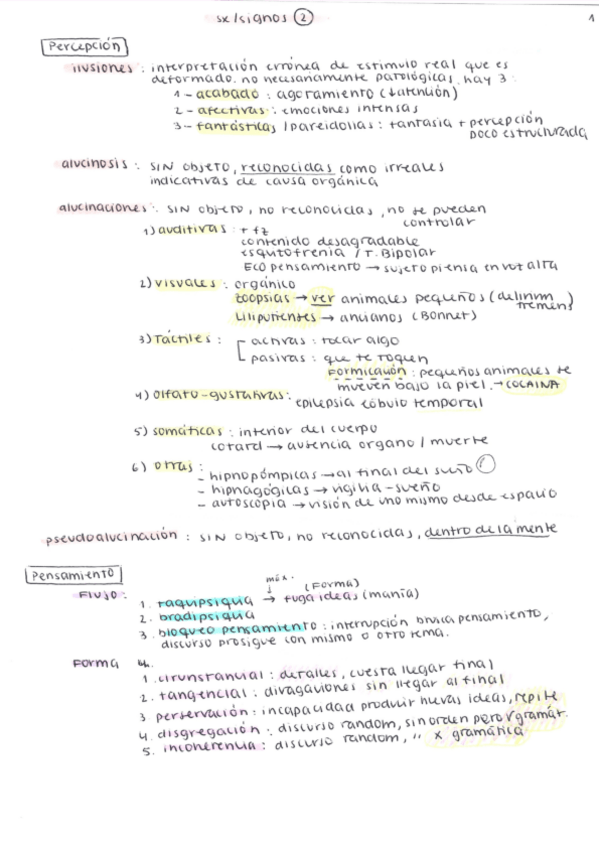 sx/signos ② 1
Percepción
ilusiones: interpretación errónea de estímulo real que es
deformado. no necesariamente patológicas, hay 3:
1 - acabado: agotamiento (↓atención)
2 - afectivas: emociones intensas
3 - fantásticas / pareidolias: fantasía + percepción
poco estructurada
alucinosis: SIN objeto, reconocidas como irreales
indicativas de causa orgánica
alucinaciones: SIN objeto, no reconocidas, no se pueden
controlar
1) auditivas: + fz
contenido desagradable
esquizofrenia / T. Bipolar
ECO pensamiento → sujeto piensa en voz alta
2) visuales: orgánico
zoopsias → ver animales pequeños (delirium
tremens)
Liliputienses → ancianos (Bonnet)
3) Táctiles: activas: tocar algo
pasivas: que te toquen
Formicación: pequeños animales te
mueven bajo la piel. → COCAINA
4) olfato-gustativas:
epilepsia lóbulo temporal
5) somáticas: interior del cuerpo
cotard → ausencia organo / muerte
6) otras:
- hipnopómpicas → al final del sueño
- hipnagógicas → vigilia-sueño
- autoscopia → visión de uno mismo desde espacio
pseudoalucinación: SIN objeto, no reconocidas, dentro de la mente
Pensamiento
Flujo: máx. (Forma)
1. taquipsiquia → fuga ideas (manía)
2. bradipsiquia
3. bloqueo pensamiento: interrupción brusca pensamiento,
discurso prosigue con mismo o otro tema.
Forma
1. cirunstancial: detalles, cuesta llegar final
2. tangencial: divagaciones sin llegar al final
3 perservación: incapacidad producir nuevas ideas, repite
4. disgregación: discurso random, sin orden pero √ gramát.
5. incoherencia: discurso random, " x gramática